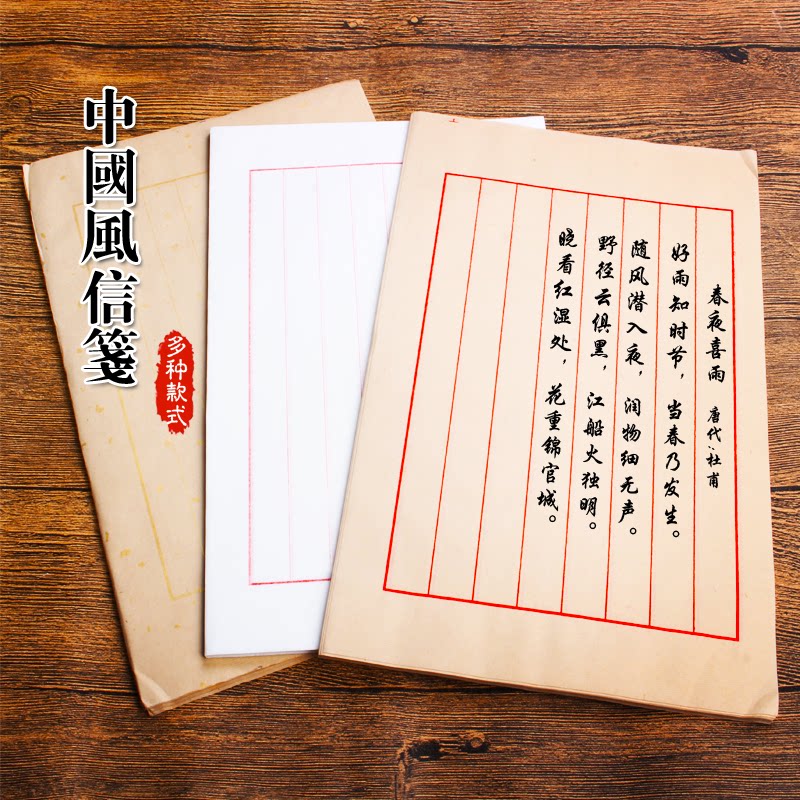 中國風信箋
多种款式
春夜喜雨 唐代·杜甫
好雨知时节，当春乃发生。
随风潜入夜，润物细无声。
野径云俱黑，江船火独明。
晓看红湿处，花重锦官城。